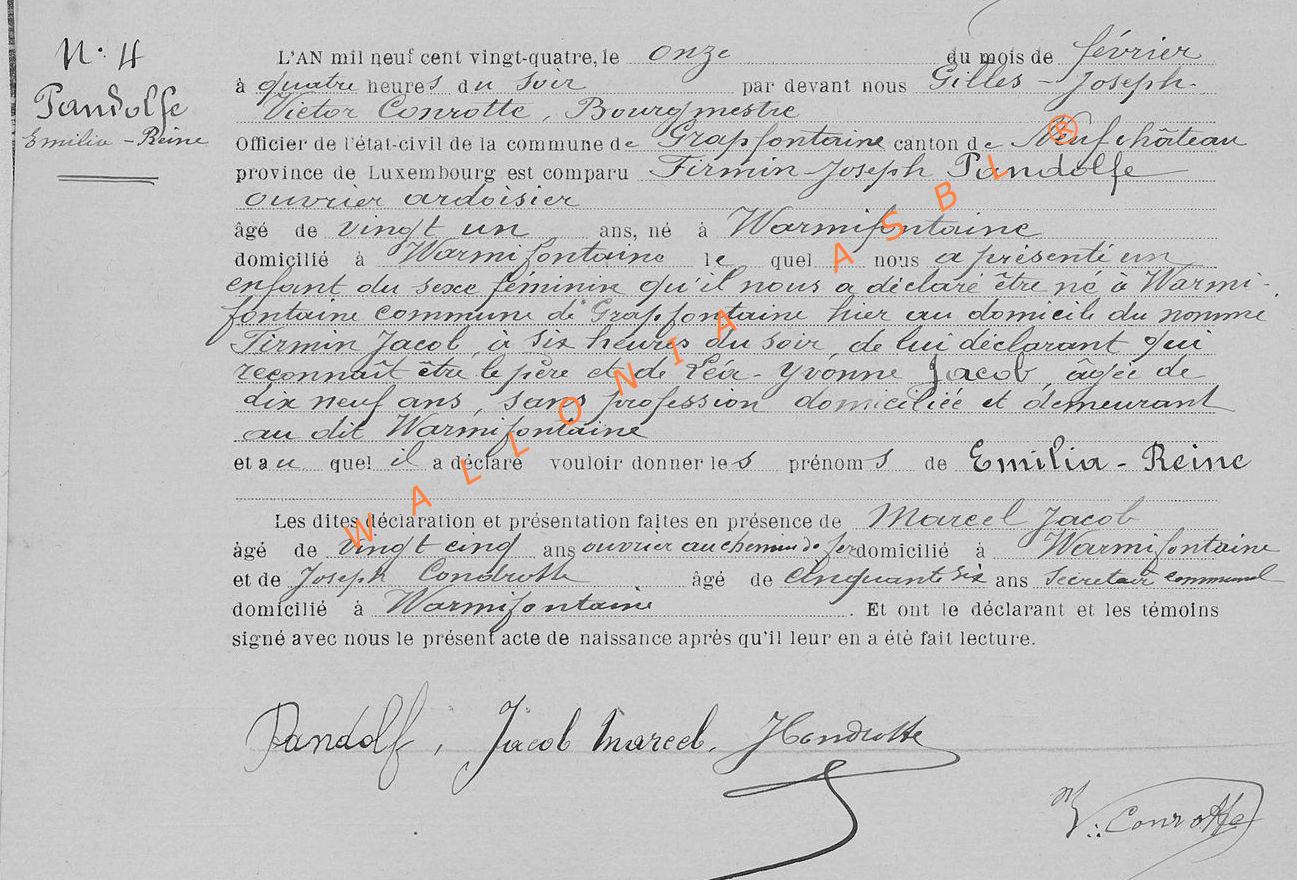 N° 4
Pandolfe
Emilia - Reine
L'AN mil neuf cent vingt-quatre, le onze du mois de février
à quatre heures du soir par devant nous Gilles - Joseph-
Victor Conrotte, Bourgmestre
Officier de l'état-civil de la commune de Grapfontaine canton de Neufchâteau
province de Luxembourg est comparu Firmin-Joseph Pandolfe
ouvrier ardoisier
âgé de vingt un ans, né à Warmifontaine
domicilié à Warmifontaine le quel nous a présenté un
enfant du sexe féminin qu'il nous a déclaré être né à Warmi-
fontaine commune de Grapfontaine hier au domicile du nommé
Firmin Jacob, à six heures du soir, de lui déclarant qui
reconnaît être le père et de Léa-Yvonne Jacob, âgée de
dix neuf ans, sans profession domiciliée et demeurant
au dit Warmifontaine
et au quel il a déclaré vouloir donner les prénoms de Emilia - Reine
Les dites déclaration et présentation faites en présence de Marcel Jacob
âgé de vingt cinq ans ouvrier au chemin de fer domicilié à Warmifontaine
et de Joseph Condrotte âgé de cinquante six ans secretair communal
domicilié à Warmifontaine. Et ont le déclarant et les témoins
signé avec nous le présent acte de naissance après qu'il leur en a été fait lecture.
Pandolf, Jacob Marcel, JCondrotte
V. Conrotte
WALLONIA ASBL ®